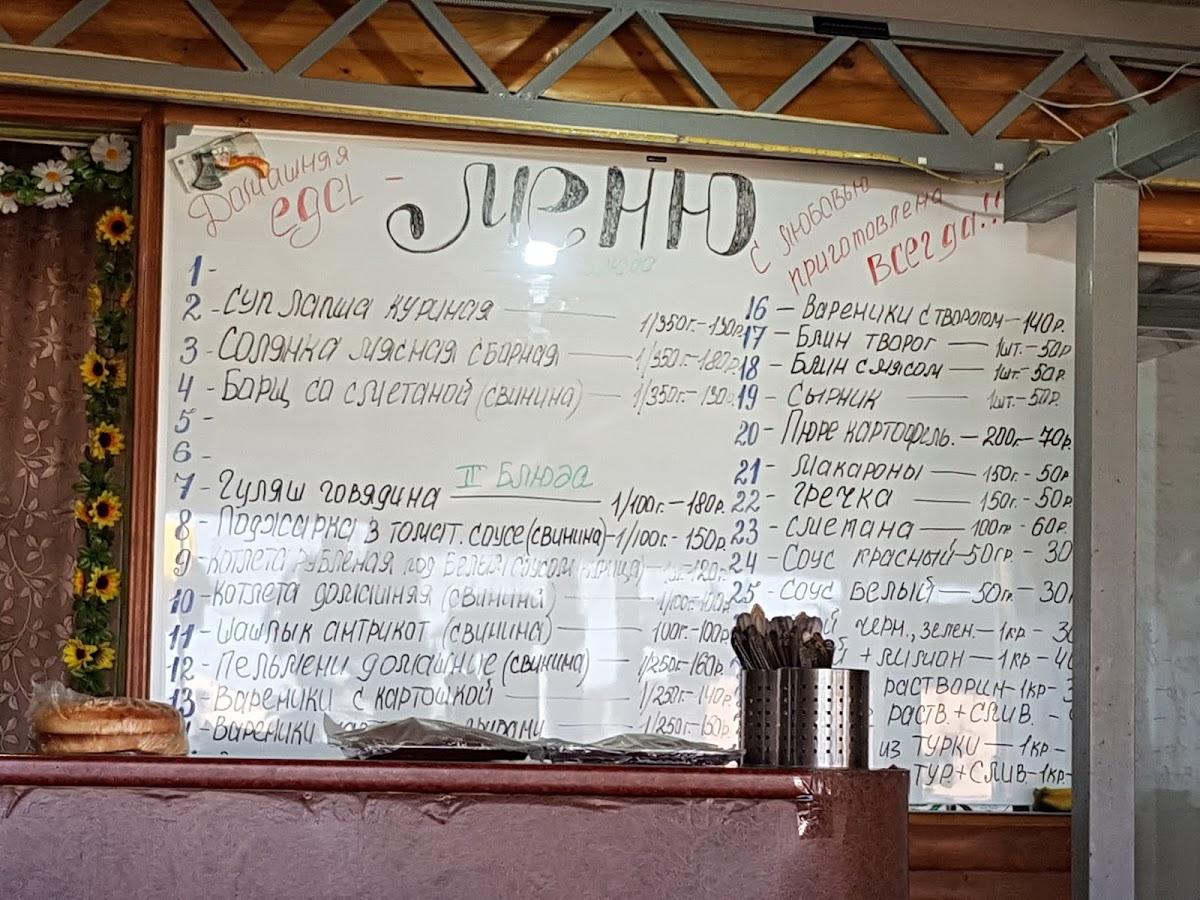 Домашняя
еда -
Меню
С любовью
приготовлена
всегда!!
блюда
1 -
2 - Суп лапша куриная — 1/350г.-130р.
3 - Солянка мясная сборная — 1/350г.-180р.
4 - Барщ со сметаной (свинина) — 1/350г.-130р.
5 -
6 -
II Блюда
7 - Гуляш говядина — 1/100г.-180р.
8 - Поджарка в томат. соусе (свинина)-1/100г.-150р.
9 - Котлета рубленая под белым соусом (курица) - 120р.
10 - Котлета домашняя (свинина) — 1/100г.-100р.
11 - Шашлык антрикот (свинина) — 100г.-100р.
12 - Пельмени домашние (свинина) — 1/250г.-160р.
13 - Вареники с картошкой — 1/250г.-140р.
Вареники — 1/250г.-150р.
16 - Вареники с творогом - 140р.
17 - Блин творог — 1шт.-50р
18 - Блин с мясом — 1шт.-50р.
19 - Сырник — 1шт.-50р.
20 - Пюре картофель. - 200г.-70р.
21 - Макароны — 150г.-50р
22 - Гречка — 150г.-50р.
23 - Сметана — 100гр-60р.
24 - Соус красный-50гр.-30
25 - Соус белый — 50г.-30
черн., зелен.-1кр-
+лимон-1кр-
растворим-1кр-
раств.+слив. -
из турки — 1кр-
тур+слив-1кр-